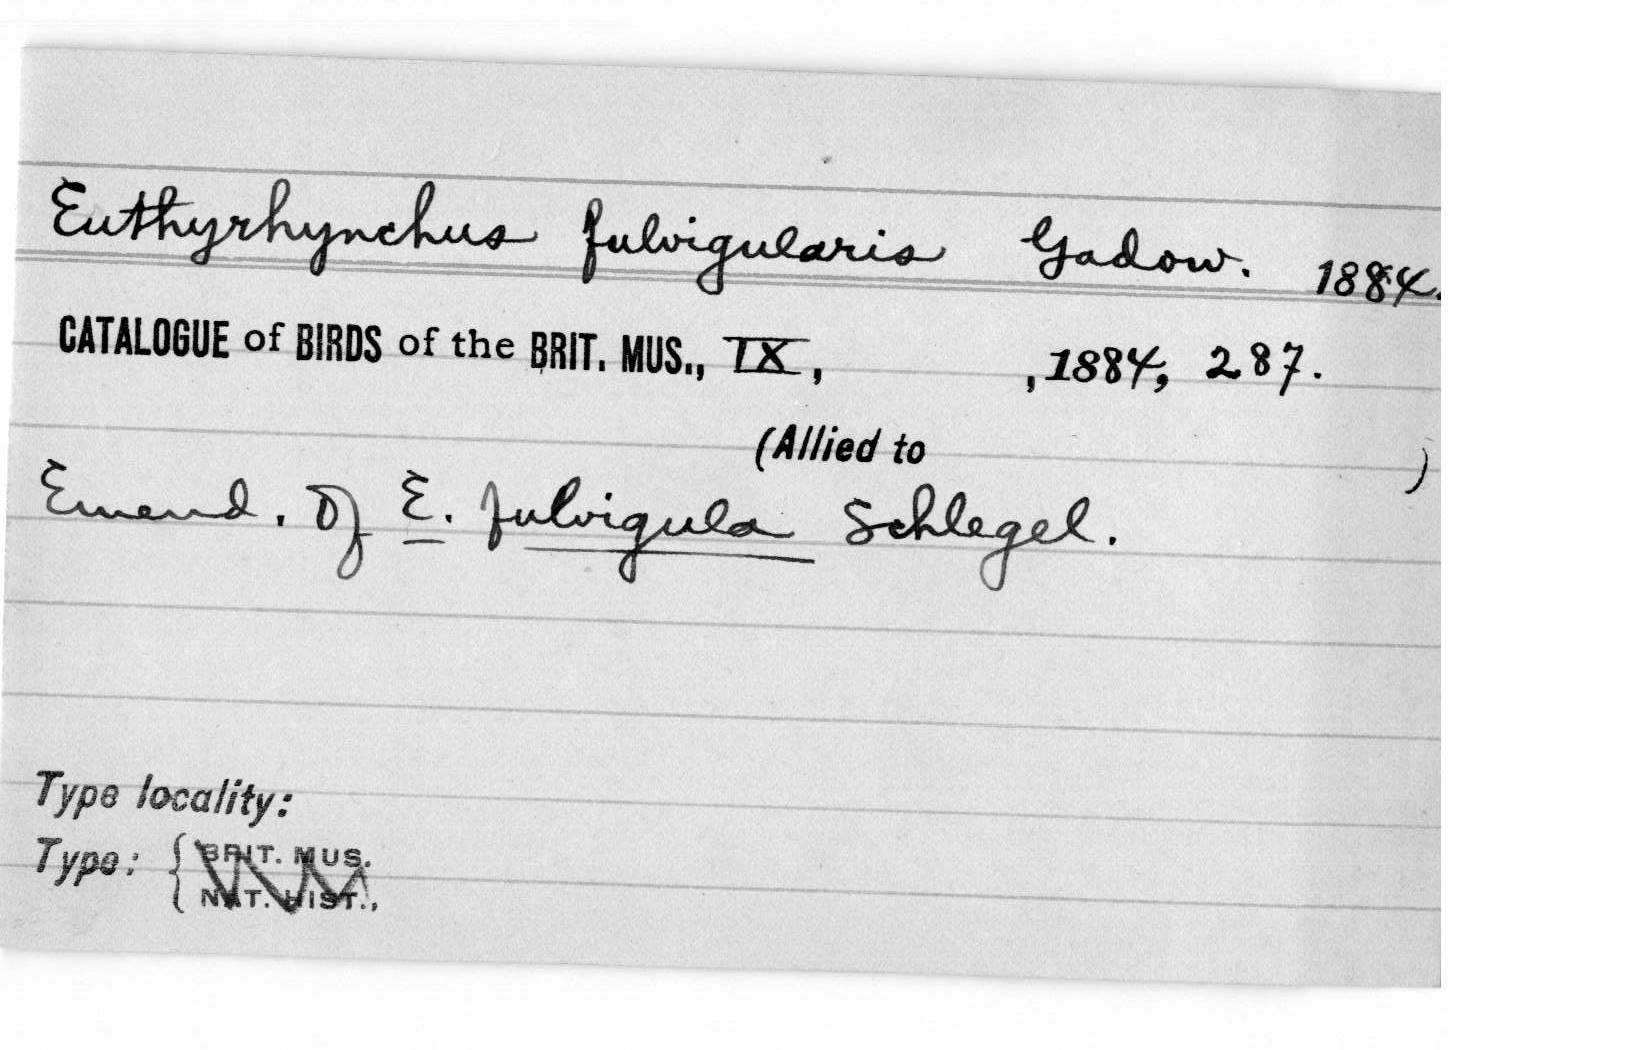 Euthyrhynchus fulvigularis Gadow. 1884.
CATALOGUE of BIRDS of the BRIT. MUS., IX, , 1884, 287.
(Allied to )
Emend. of E. fulvigula Schlegel.
Type locality:
Type: { BRIT. MUS.
NAT. HIST.,